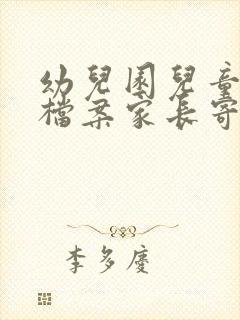 幼兒園兒童
檔案家長寄
李多慶